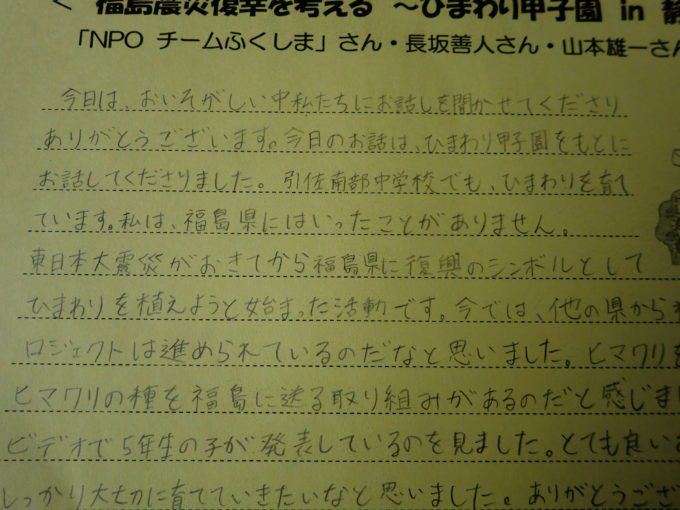 < 福島震災復幸を考える ～ひまわり甲子園 in 静
「NPO チームふくしま」さん・長坂善人さん・山本雄一さん
今日は、おいそがしい中私たちにお話しを聞かせてくださり
ありがとうございます。今日のお話は、ひまわり甲子園をもとに
お話してくださりました。引佐南部中学校でも、ひまわりを育て
ています。私は、福島県にはいったことがありません。
東日本大震災がおきてから福島県に復興のシンボルとして
ひまわりを植えようと始まった活動です。今では、他の県から
ロジェクトは進められているのだなと思いました。ヒマワリを
ヒマワリの種を福島に送る取り組みがあるのだと感じま
ビデオで5年生の子が発表しているのを見ました。とても良い
しっかり大切に育てていきたいなと思いました。ありがとうござ